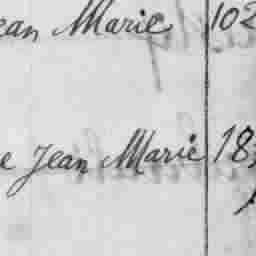 ean Marie 102
e Jean Marie 183